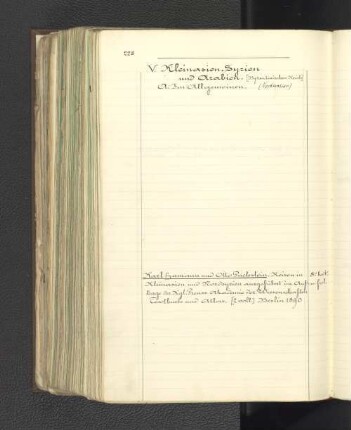 222
V. Kleinasien, Syrien
und Arabien. [Byzantinisches Reich]
A. Im Allgemeinen.
Karl Humann und Otto Puchstein. Reisen in
Kleinasien und Nordsyrien ausgeführt im Auf-
trage der Kgl. Preuss. Akademie der Wissenschaften
Textband und Atlas. [2 voll.] Berlin 1890